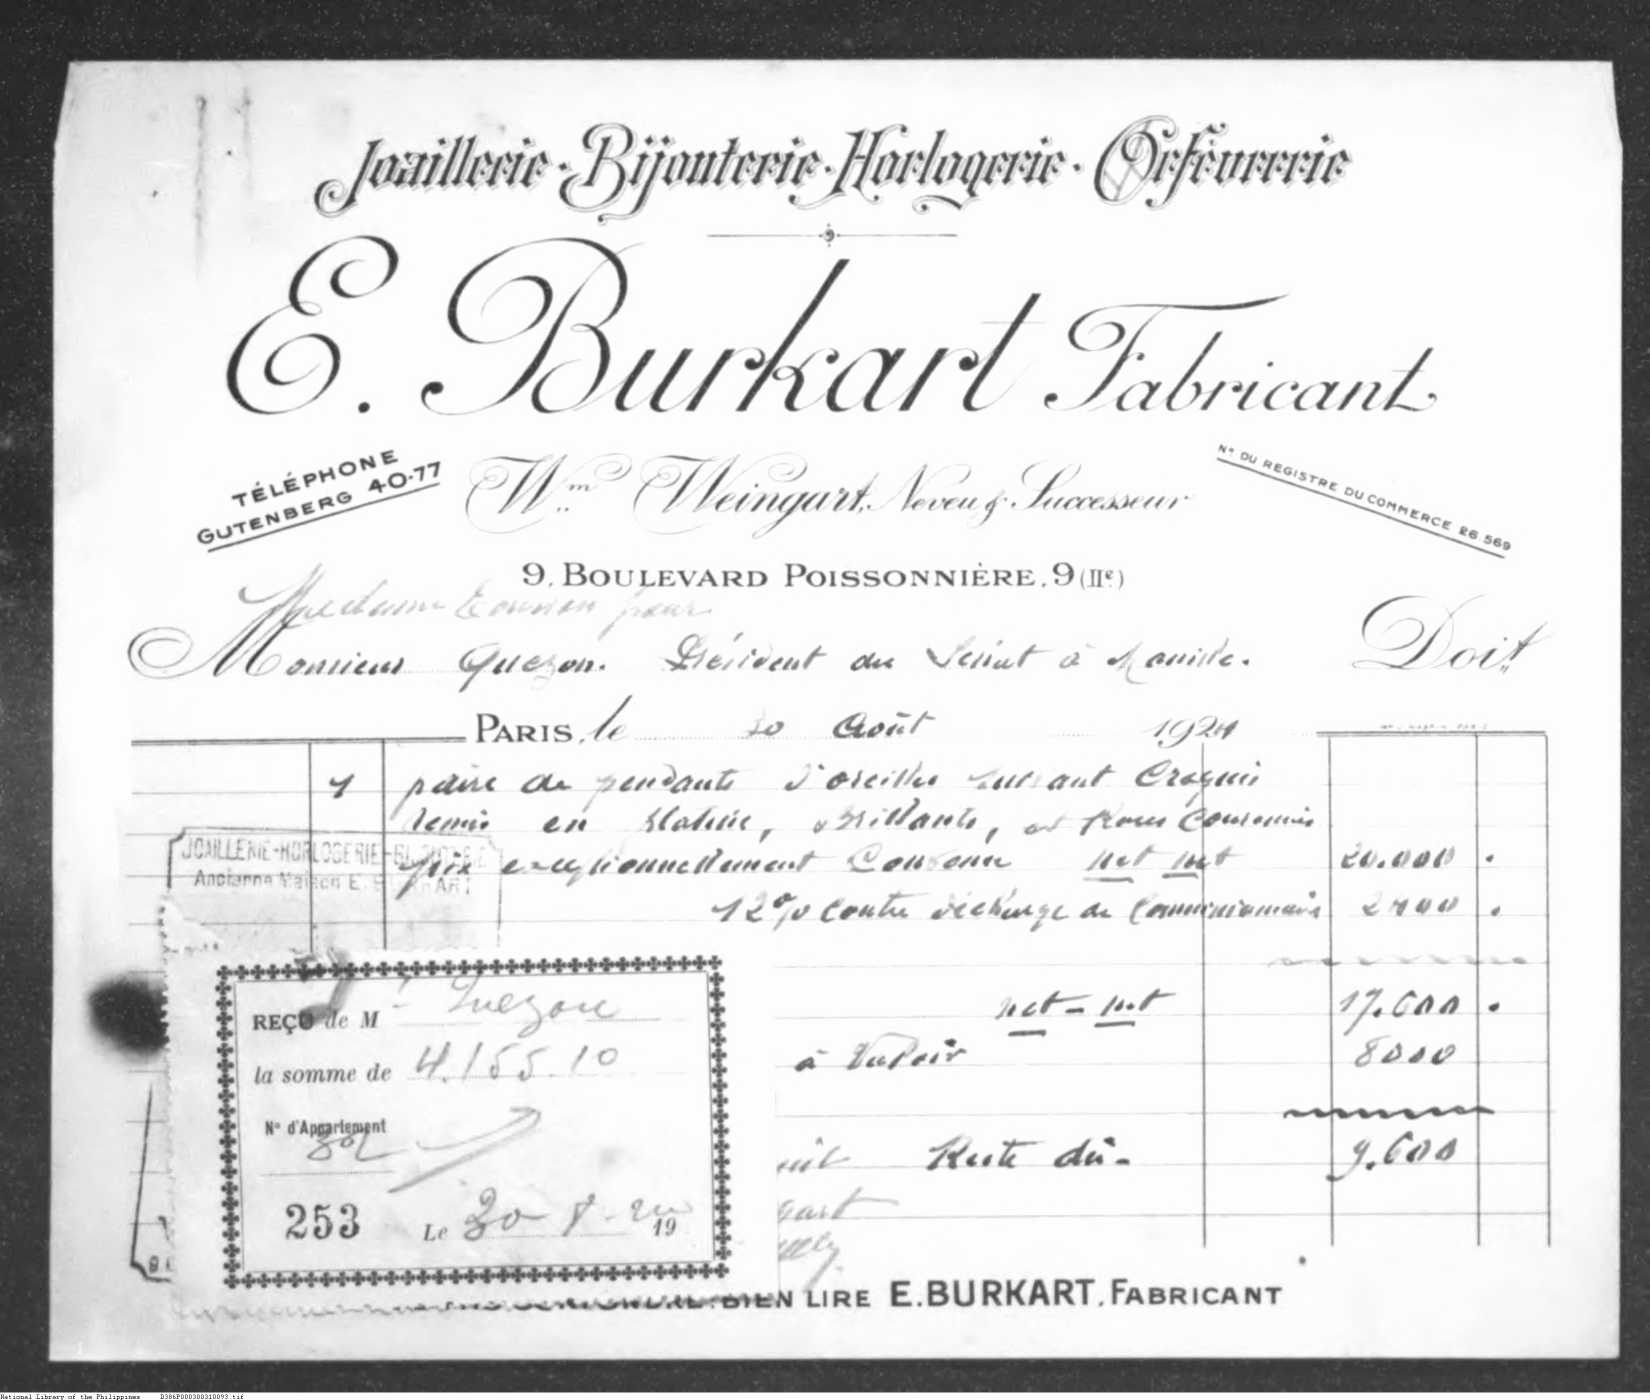 Joaillerie - Bijouterie - Horlogerie - Orfèvrerie
E. Burkart Fabricant
TÉLÉPHONE
GUTENBERG 40-77
Wm Weingart, Neveu & Successeur
N° DU REGISTRE DU COMMERCE 26.569
9, BOULEVARD POISSONNIÈRE, 9 (IIe)
Madame pour
Monsieur Quezon. Président du Sénat à Manille. Doit
PARIS, le 30 Août 1924
1 paire de pendants d'oreilles suivant Croquis
remis en platine, brillants, et roses Couronnés
prix exceptionnellement Convenu net net 20.000 .
12% contre décharge de Commissionnaire 2400 .
net - net 17.600 .
à 8000
Reste dû - 9.600
JOAILLERIE-HORLOGERIE-BIJOUTERIE
Ancienne Maison E. BURKART
REÇU de M Quezon
la somme de 4.155.10
N° d'Appartement
253 Le 30 - 8 - 19
BIEN LIRE E. BURKART, FABRICANT
National Library of the Philippines D386P000300310093.tif